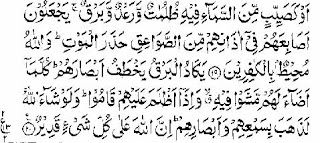 اَوْ كَصَيِّبٍ مِّنَ السَّمَآءِ فِيْهِ ظُلُمٰتٌ وَّرَعْدٌ وَّبَرْقٌ ۚ يَجْعَلُوْنَ
اَصَابِعَهُمْ فِيْۤ اٰذَانِهِمْ مِّنَ الصَّوَاعِقِ حَذَرَ الْمَوْتِ ؕ وَاللّٰهُ
مُحِيْطٌۢ بِالْكٰفِرِيْنَ ﴿۱۹﴾ يَكَادُ الْبَرْقُ يَخْطَفُ اَبْصَارَهُمْ ؕ كُلَّمَاۤ
اَضَآءَ لَهُمْ مَّشَوْا فِيْهِ ۙ وَاِذَاۤ اَظْلَمَ عَلَيْهِمْ قَامُوْا ؕ وَلَوْ شَآءَ اللّٰهُ
لَذَهَبَ بِسَمْعِهِمْ وَاَبْصَارِهِمْ ؕ اِنَّ اللّٰهَ عَلٰى كُلِّ شَيْءٍ قَدِيْرٌ ﴿۲۰﴾